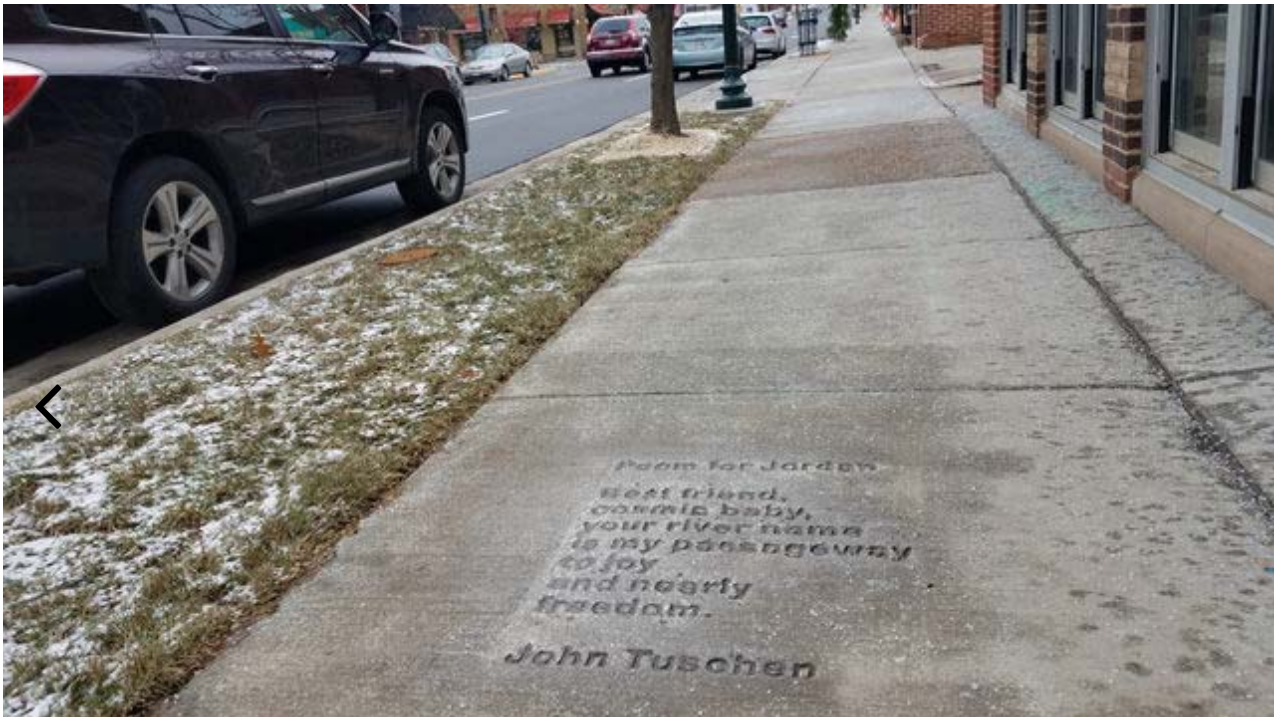 Poem for Jordan
Best friend,
cosmic baby,
your river name
is my passageway
to joy
and nearly
freedom.
John Tuschen